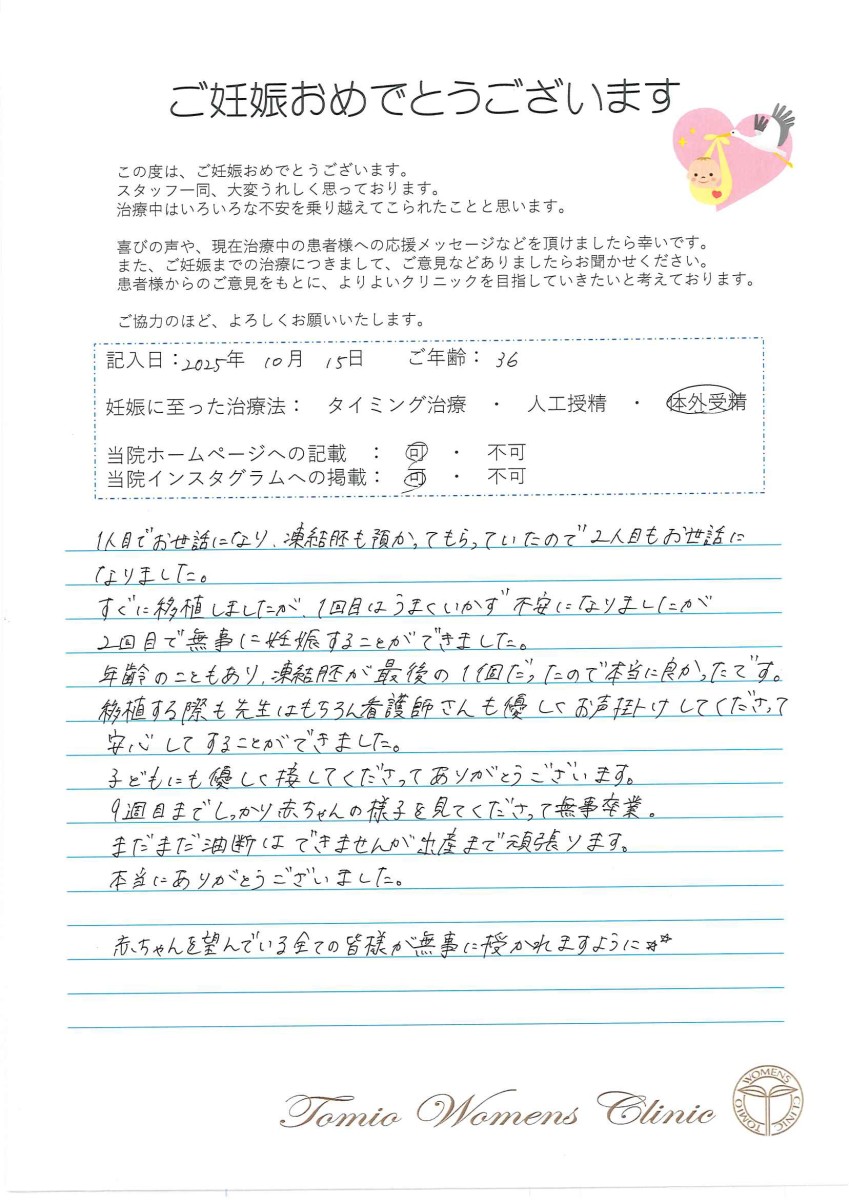 ご妊娠おめでとうございます
この度は、ご妊娠おめでとうございます。
スタッフ一同、大変うれしく思っております。
治療中はいろいろな不安を乗り越えてこられたことと思います。
喜びの声や、現在治療中の患者様への応援メッセージなどを頂けましたら幸いです。
また、ご妊娠までの治療につきまして、ご意見などありましたらお聞かせください。
患者様からのご意見をもとに、よりよいクリニックを目指していきたいと考えております。
ご協力のほど、よろしくお願いいたします。
記入日：2025年 10月 15日 ご年齢：36
妊娠に至った治療法： タイミング治療 ・ 人工授精 ・ 体外受精
当院ホームページへの記載 ： 可 ・ 不可
当院インスタグラムへの掲載： 可 ・ 不可
1人目でお世話になり、凍結胚も預かってもらっていたので2人目もお世話に
なりました。
すぐに移植しましたが、1回目はうまくいかず不安になりましたが
2回目で無事に妊娠することができました。
年齢のこともあり、凍結胚が最後の1個だったので本当に良かったです。
移植する際も先生はもちろん看護師さんも優しくお声掛けしてくださって
安心してすることができました。
子どもにも優しく接してくださってありがとうございます。
9週目までしっかり赤ちゃんの様子を見てくださって無事卒業。
まだまだ油断はできませんが出産まで頑張ります。
本当にありがとうございました。
赤ちゃんを望んでいる全ての皆様が無事に授かれますように☆☆
Tomio Womens Clinic
WOMENS CLINIC TOMIO